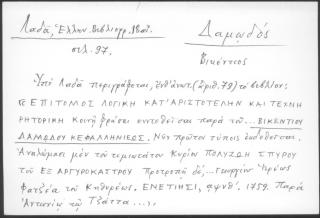 Λαδᾶ, Ἑλλην. Βιβλιογρ. 18αι.
Δαμωδός
σελ. 97.
Βικέντιος
Ὑπὸ Λαδᾶ περιγράφεται, (ἀριθ. 79) τὸ βιβλίον:
"ΕΠΙΤΟΜΟΣ ΛΟΓΙΚΗ ΚΑΤ' ΑΡΙΣΤΟΤΕΛΗΝ ΚΑΙ ΤΕΧΝΗ
ΡΗΤΟΡΙΚΗ Κοινῇ φράσει συντεθεῖσα παρὰ τοῦ... ΒΙΚΕΝΤΙΟΥ
ΔΑΜΩΔΟΥ ΚΕΦΑΛΛΗΝΙΕΩΣ. Νῦν πρῶτον τύποις ἐκδοθεῖσα.
Ἀναλώμασι μὲν τοῦ τιμιωτάτου Κυρίου ΠΟΛΥΖΩΗ ΣΠΥΡΟΥ
τοῦ ΕΞ ΑΡΓΥΡΟΚΑΣΤΡΟΥ Προτροπῇ δὲ,.. Γεωργίου
Φατζέα τοῦ Κηθυρέως. ΕΝΕΤΙΗΣΙ, αψνθ'. 1759. Παρὰ
Ἀντωνίῳ τῷ Τζάττα...,,